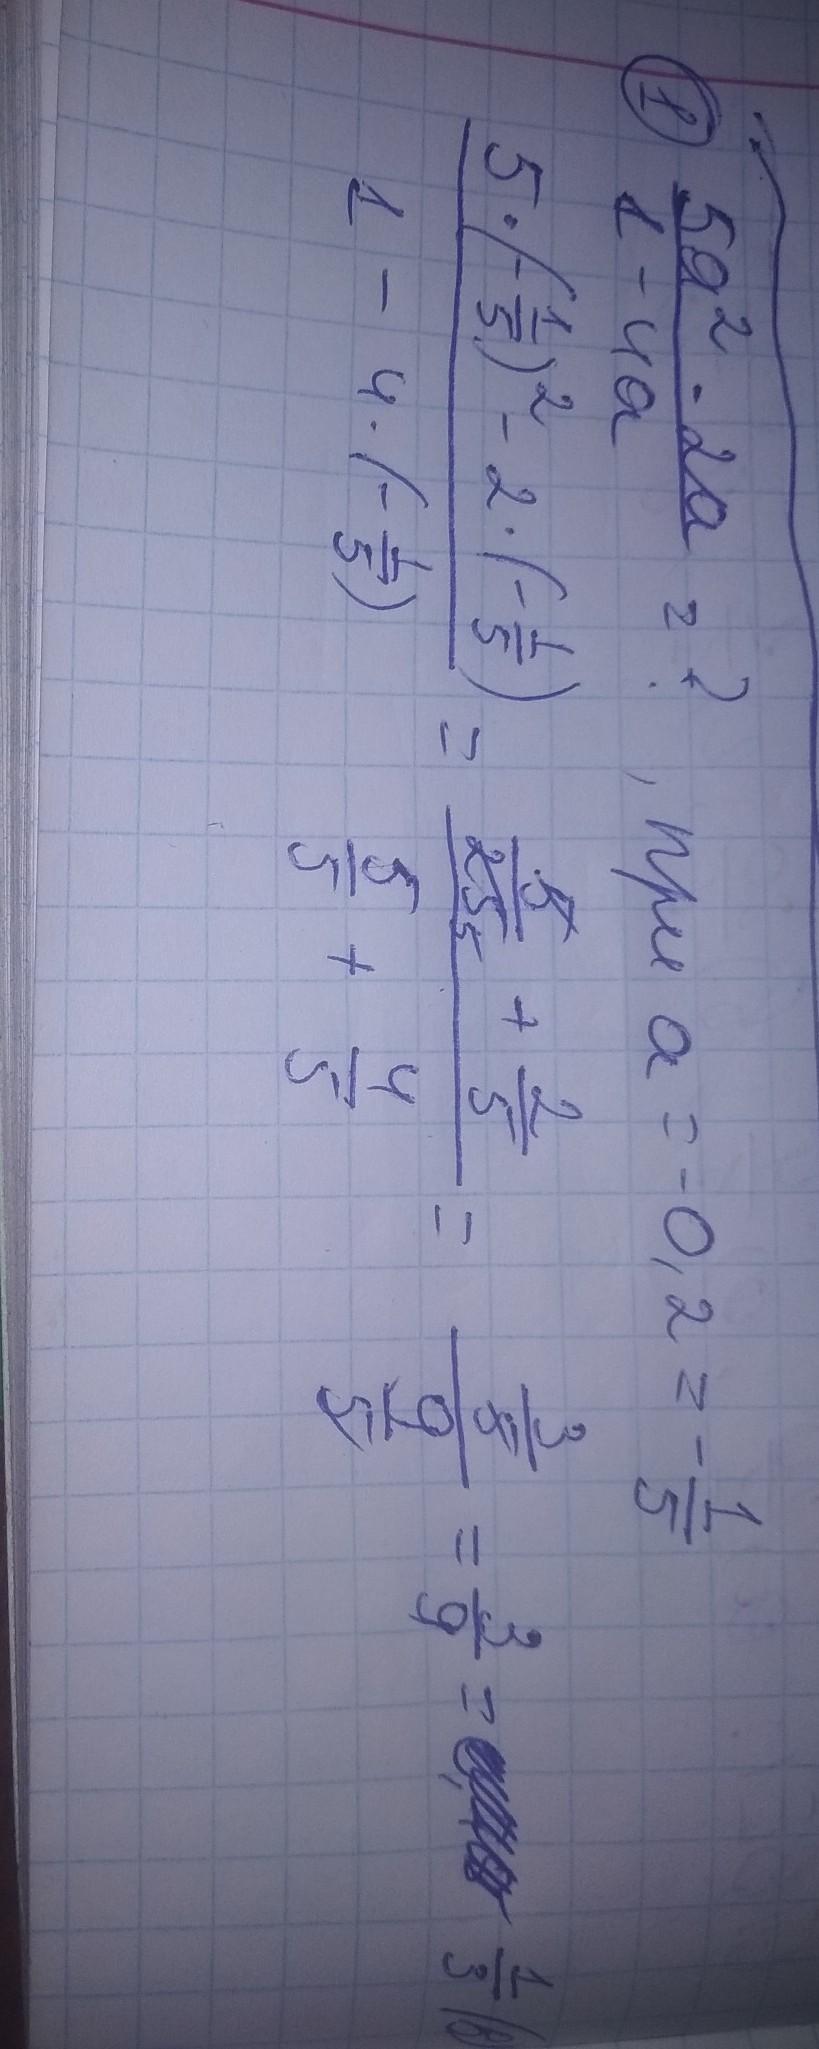 ① (5a² - 2a)/(1 - 4a) = ?, при a = -0,2 = -1/5
(5·(-1/5)² - 2·(-1/5))/(1 - 4·(-1/5)) = (5/25 5 + 2/5)/(5/5 + 4/5) = (3/5)/(9/5) = 3/9 = 1/3 (в)